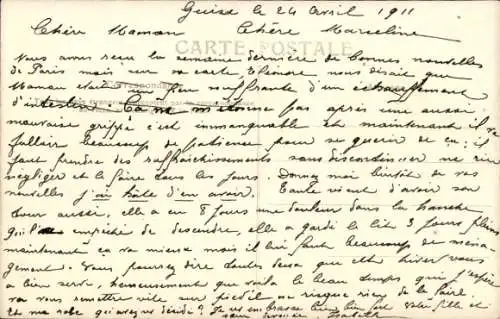 Guise le 24 Avril 1911
Chère Maman Chère Marceline
CARTE POSTALE
Nous avons reçu la semaine dernière de bonnes nouvelles
de Paris mais sur sa carte Eléonore nous disait que
Maman était un peu souffrante d'un échauffement
d'intestin. Ca ne m'étonne pas après une aussi
mauvaise grippe c'est immanquable et maintenant il va
falloir beaucoup de patience pour se guérir de ça; il
faut prendre des rafraichissements sans discontinuer ne rien
négliger et le faire tous les jours. Donnez moi bientôt de vos
nouvelles j'ai hâte d'en avoir. Tante vient d'avoir son
tour aussi, elle a eu 8 jours une douleur dans la hanche
qui l'a empêché de descendre, elle a gardé le lit 3 jours pleins
maintenant ça va mieux mais il lui faut beaucoup de ména-
gement. Vous pourrez dire toutes deux que cet hiver vous
a bien servi, heureusement que voila le beau temps qui j'espère
va vous remettre vite sur pied
Et ma robe qu'avez vous décidé? Je vous embrasse bien bien fort Votre fille et